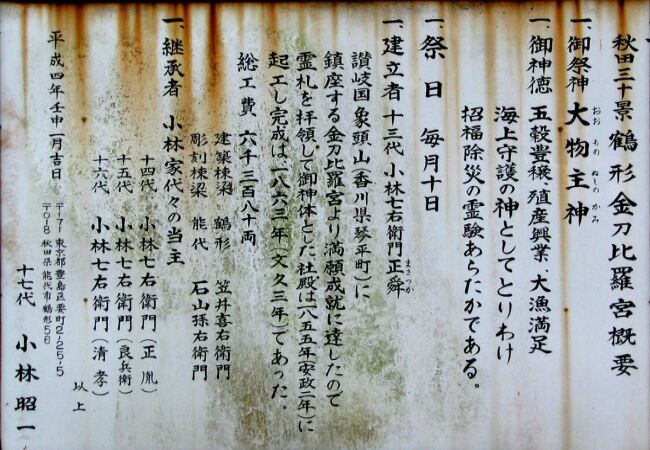 秋田三十景鶴形金刀比羅宮概要
一、御祭神 大物主神
おお もの ぬしの かみ
一、御神徳 五穀豊穣、殖産興業、大漁満足
海上守護の神としてとりわけ
招福除災の霊験あらたかである。
一、祭日 毎月十日
一、建立者 十三代 小林七右衛門正舜
まさつか
讃岐国象頭山(香川県琴平町)に
鎮座する金刀比羅宮より満願成就に達したので
霊札を拝領して御神体とした社殿は一八五五年(安政二年)に
起工し完成は、一八六三年(文久三年)であった。
総工費 六千三百八十両
建築棟梁 鶴形 笠井喜右衛門
彫刻棟梁 能代 石山孫右衛門
一、継承者 小林家代々の当主
十四代 小林七右衛門(正胤)
十五代 小林七右衛門(良兵衛)
十六代 小林七右衛門(清孝)
以上
平成四年壬申一月吉日
〒171 東京都豊島区要町2-25-5
〒018 秋田県能代市鶴形56
十七代 小林昭一